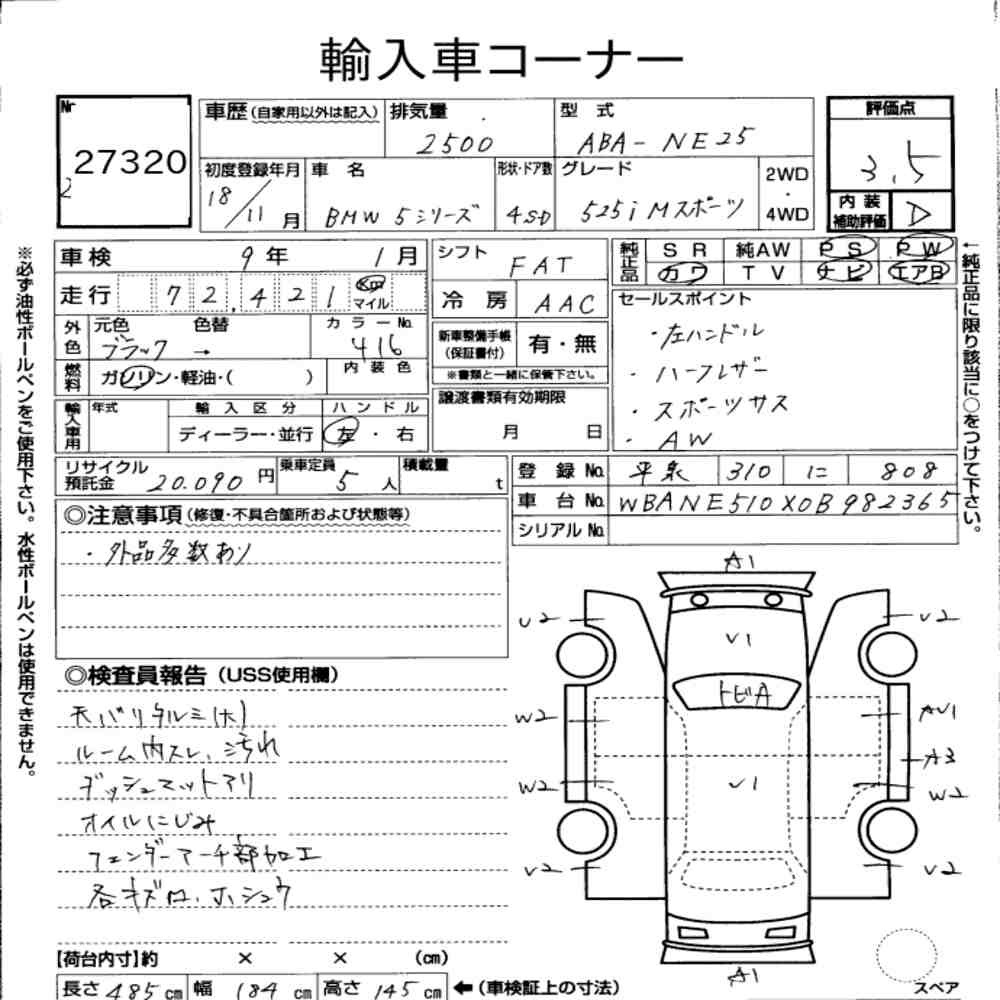 輸入車コーナー
Nr 27320
2
車歴(自家用以外は記入) 排気量 2500
型式 ABA-NE25
評価点 3.5
内装補助評価 D
初度登録年月 18/11月
車名 BMW 5シリーズ
形状・ドア数 4SD
グレード 525i Mスポーツ
2WD・4WD
車検 9年 1月
走行 72,421 Km マイル
外色 元色 ブラック 色替 →
カラーNo. 416
燃料 ガソリン・軽油・( )
内装色
輸入車用 年式 輸入区分 ハンドル
ディーラー・並行 左・右
シフト FAT
冷房 AAC
新車整備手帳(保証書付) 有・無
※書類と一緒に保管下さい。
譲渡書類有効期限
月 日
純正品 SR 純AW PS PW
カワ TV ナビ エアB
セールスポイント
・左ハンドル
・ハーフレザー
・スポーツサス
・AW
←純正品に限り該当に○をつけて下さい。
※必ず油性ボールペンをご使用下さい。水性ボールペンは使用できません。
リサイクル預託金 20.090円
乗車定員 5人
積載量 t
登録No. 310 に 808
車台No. WBANE510X0B982365
シリアルNo.
◎注意事項(修復・不具合箇所および状態等)
・外品多数あり
◎検査員報告(USS使用欄)
天バリタルミ(大)
ルーム内スレ、汚れ
ダッシュマットアリ
オイルにじみ
フェンダーアーチ部加工
各キズロ、ホシュウ
A1
U2 U2
V1
トビA
W2 AU1
A3
W2 W2
V1
U2 U2
A1
スペア
【荷台内寸】約 × × (cm)
長さ 485cm 幅 184cm 高さ 145cm ←(車検証上の寸法)